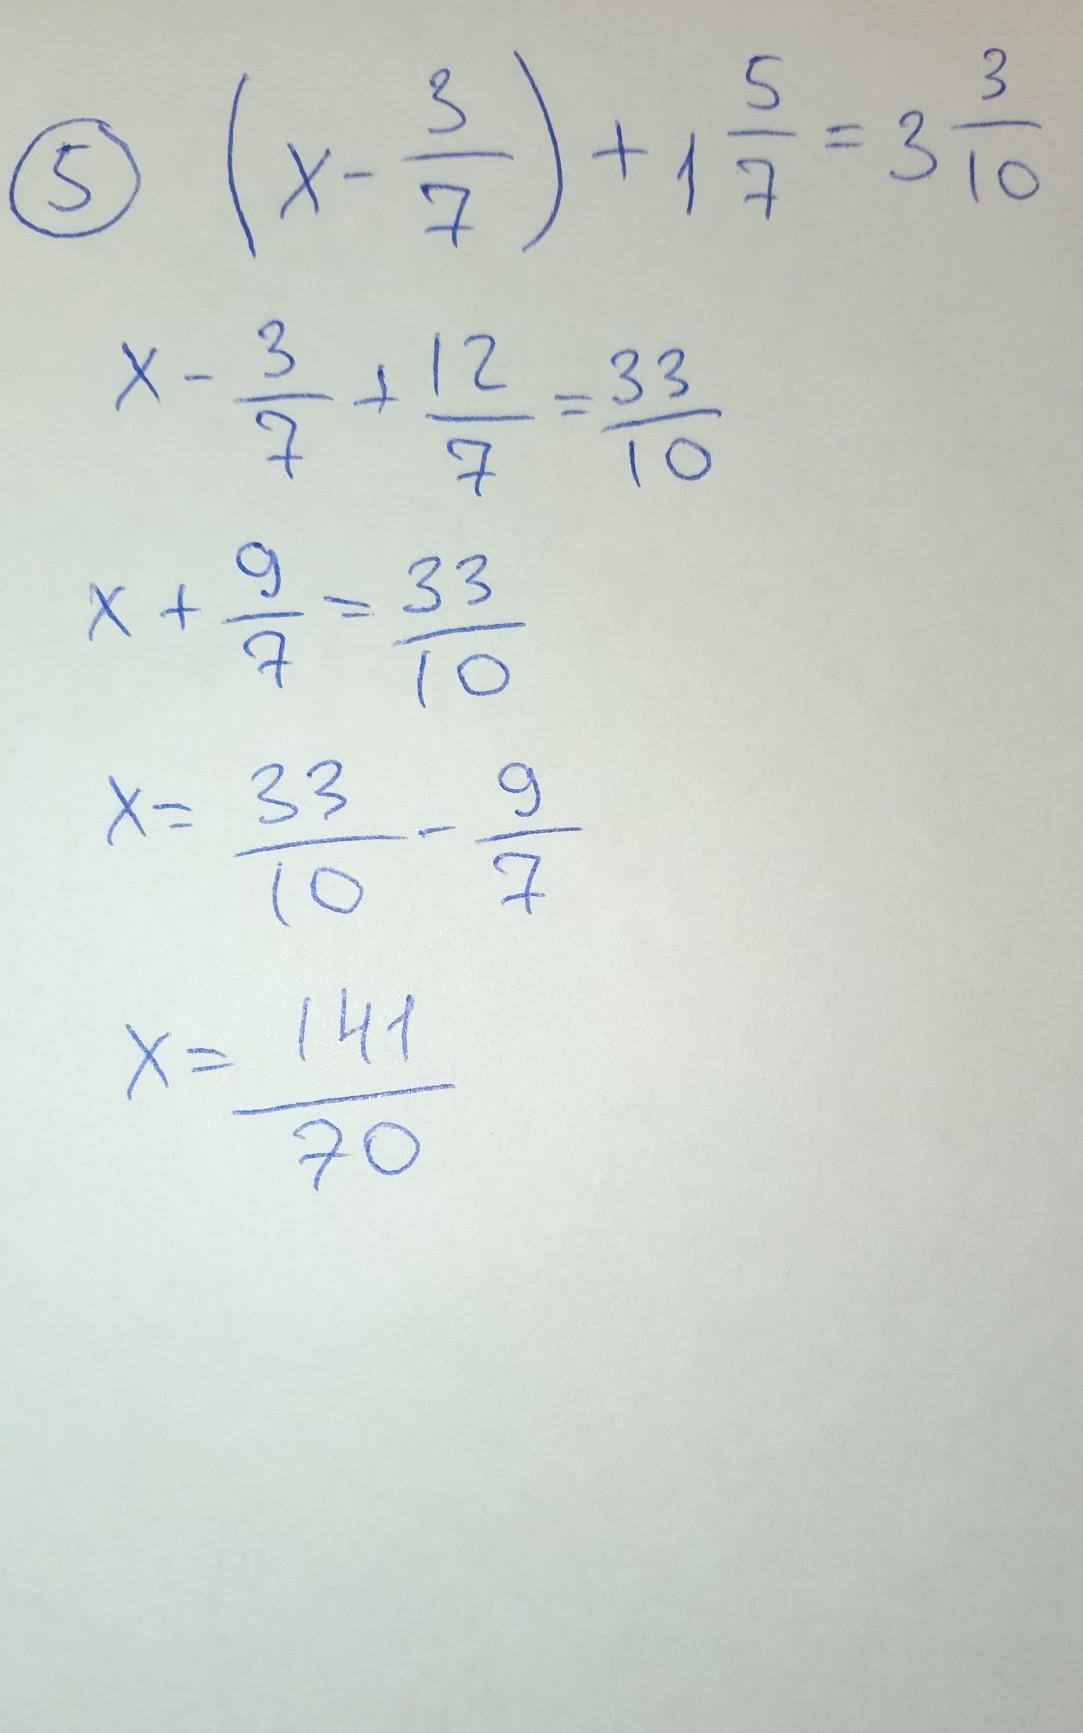 5 (x - 3/7) + 1 5/7 = 3 3/10
x - 3/7 + 12/7 = 33/10
x + 9/7 = 33/10
x = 33/10 - 9/7
x = 141/70